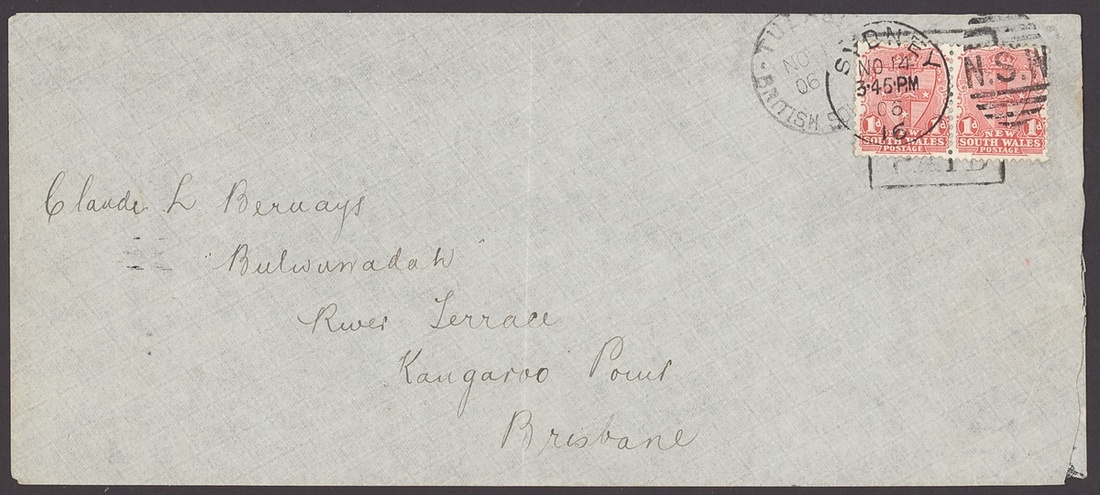 SYDNEY
NO 14
3·45·PM
06
16
NO
06
BRITISH
N.S.W
1d NEW 1d
SOUTH WALES
POSTAGE
1d NEW 1d
SOUTH WALES
POSTAGE
PAID
Claude L Bernays
Bulwurradah
River Terrace
Kangaroo Point
Brisbane